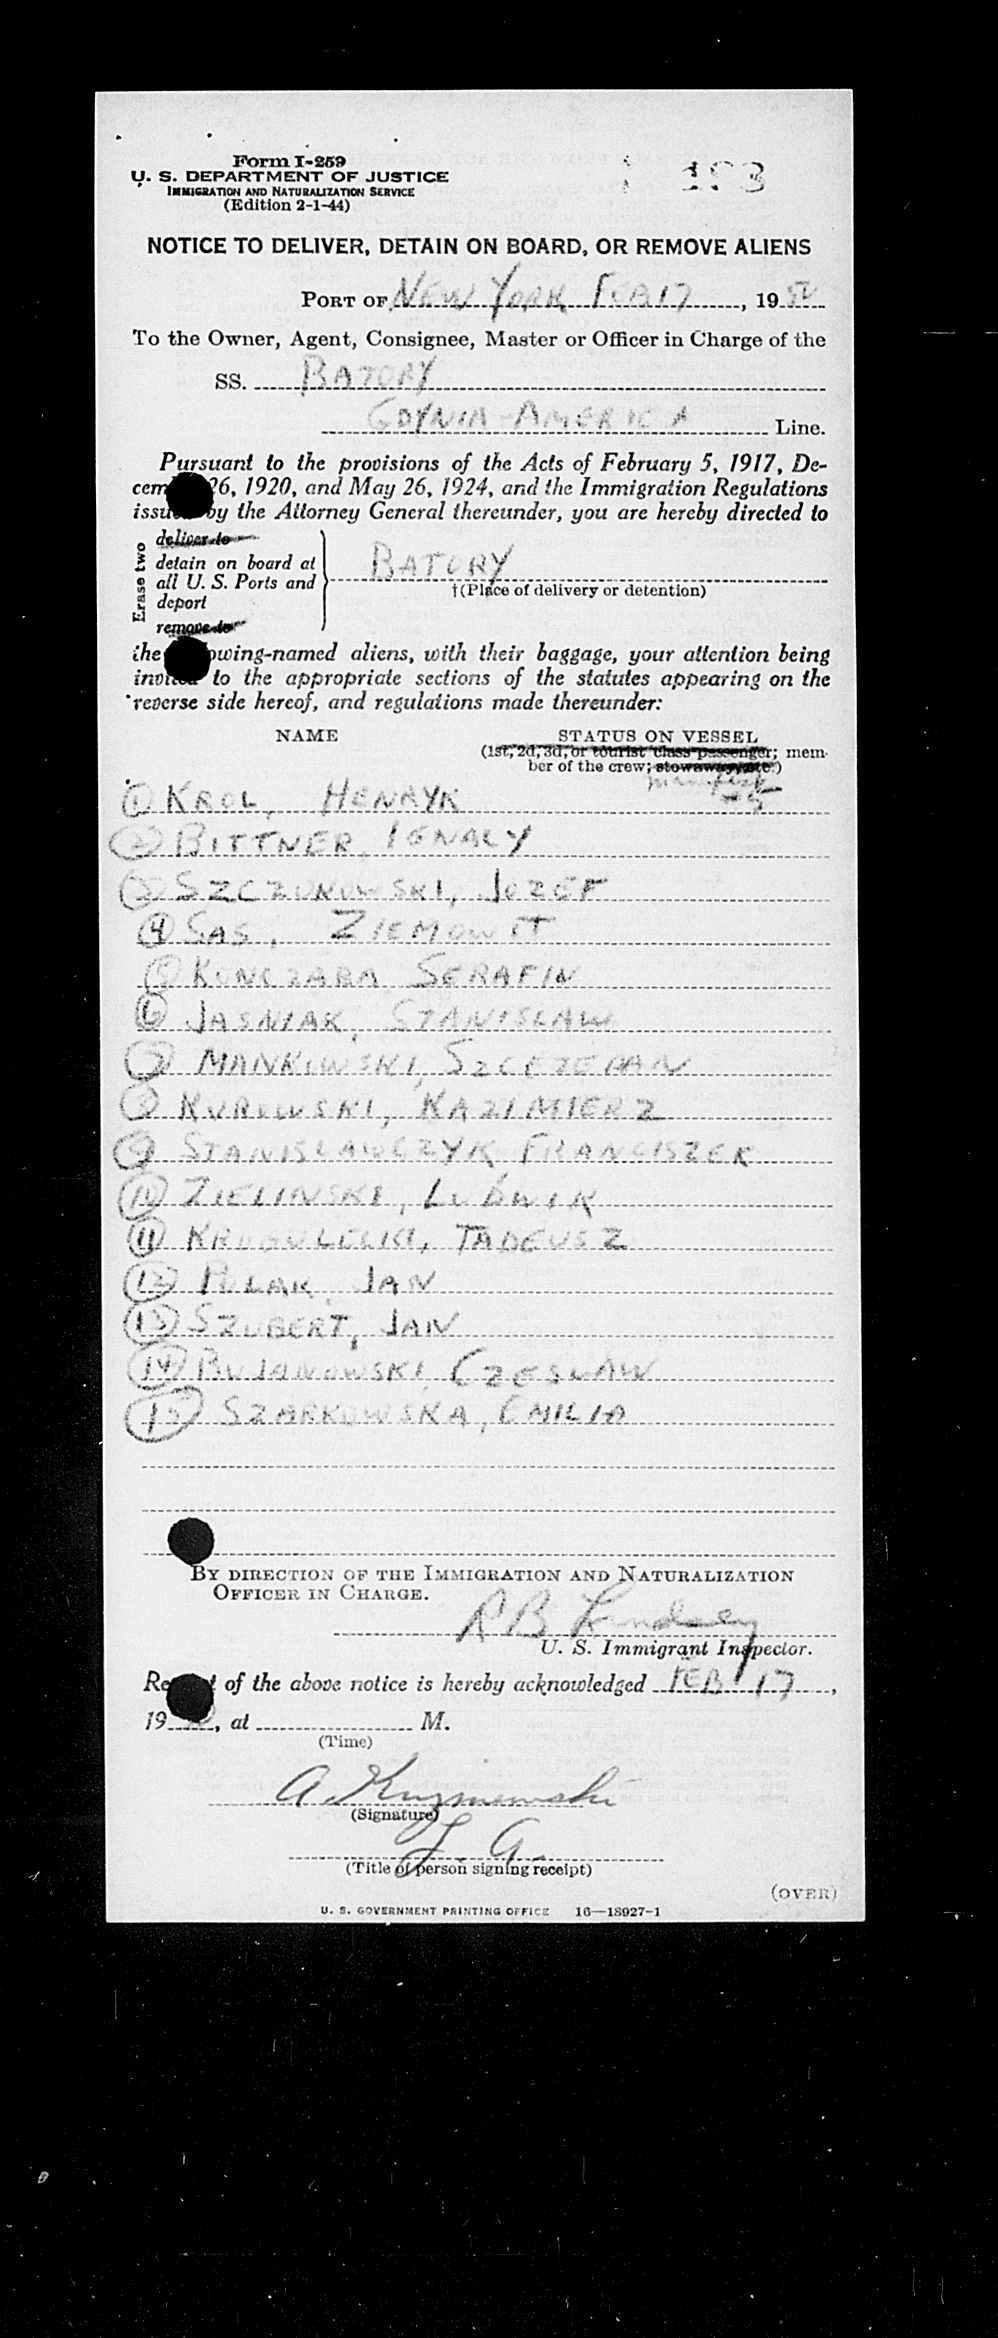 Form I-259
U. S. DEPARTMENT OF JUSTICE
IMMIGRATION AND NATURALIZATION SERVICE
(Edition 2-1-44)
193
NOTICE TO DELIVER, DETAIN ON BOARD, OR REMOVE ALIENS
PORT OF NEW YORK FEB 17, 1950
To the Owner, Agent, Consignee, Master or Officer in Charge of the
SS. BATORY
GDYNIA-AMERICA Line.
Pursuant to the provisions of the Acts of February 5, 1917, De-
cem 26, 1920, and May 26, 1924, and the Immigration Regulations
issu by the Attorney General thereunder, you are hereby directed to
Erase two
deliver to
detain on board at
all U. S. Ports and
deport
remove to
BATORY
†(Place of delivery or detention)
the owing-named aliens, with their baggage, your attention being
invited to the appropriate sections of the statutes appearing on the
reverse side hereof, and regulations made thereunder:
NAME STATUS ON VESSEL
(1st, 2d, 3d, or tourist class passenger; mem-
ber of the crew; stowaway, etc.)
1 KROL, HENRYK
2 BITTNER, IGNACY
3 SZCZUKOWSKI, JOZEF
4 SAS, ZIEMOWIT
5 KONCZARA SERAFIN
6 JASNIAK, STANISLAW
7 MANKOWSKI, SZCZEPAN
8 KUROWSKI, KAZIMIERZ
9 STANISLAWCZYK FRANCISZEK
10 ZIELINSKI, LUDWIK
11 KROGULECKI, TADEUSZ
12 POLAK, JAN
13 SZUBERT, JAN
14 BUJANOWSKI, CZESLAW
15 SZARKOWSKA, EMILIA
BY DIRECTION OF THE IMMIGRATION AND NATURALIZATION
OFFICER IN CHARGE.
R B Lindsey
U. S. Immigrant Inspector.
Re t of the above notice is hereby acknowledged FEB 17,
19 , at M.
(Time)
A. Kuzniewski
(Signature)
J. A.
(Title of person signing receipt)
(OVER)
U. S. GOVERNMENT PRINTING OFFICE 16—18927-1